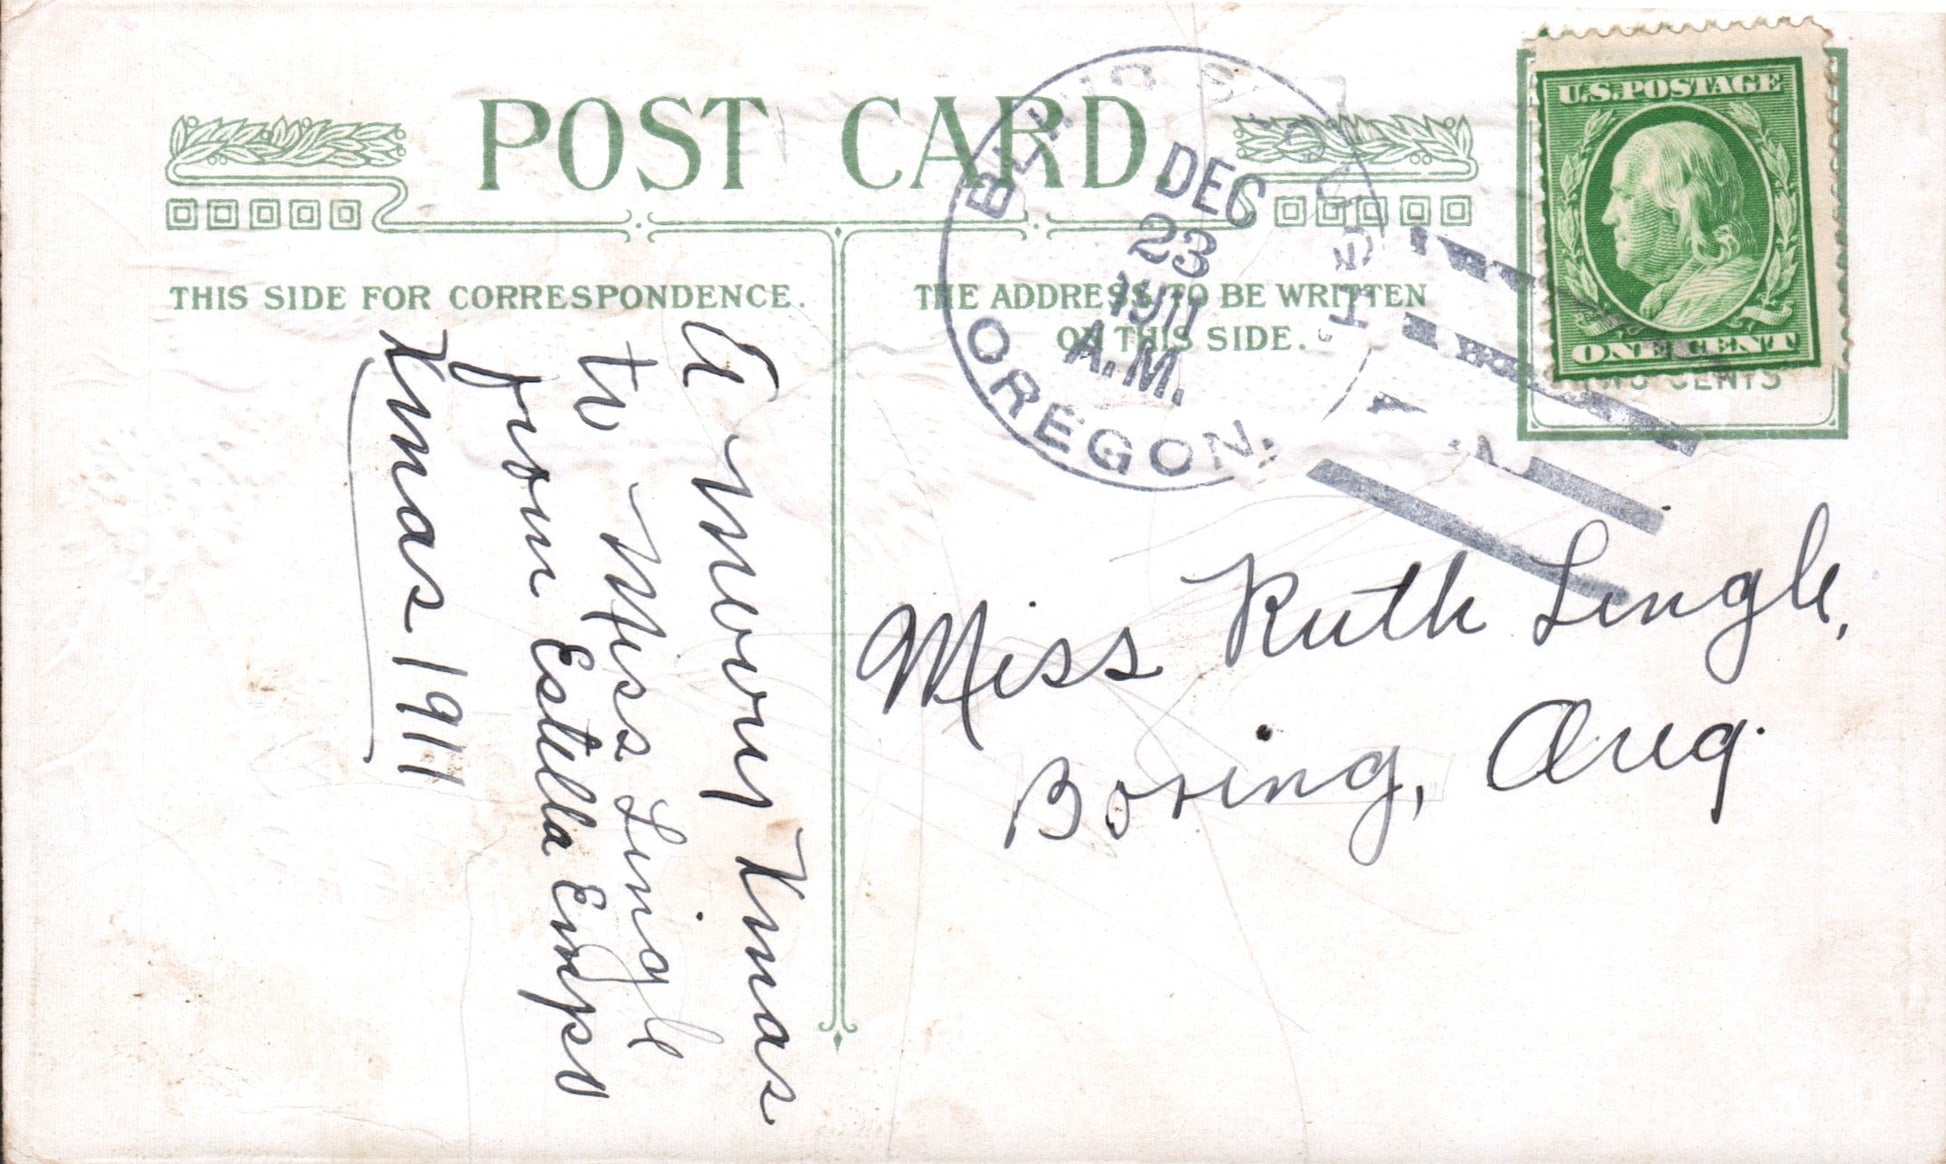 POST CARD.
THIS SIDE FOR CORRESPONDENCE.
THE ADDRESS TO BE WRITTEN
ON THIS SIDE.
DEC
23
1911
A.M.
OREGON.
U.S.POSTAGE
ONE CENT
CENTS
A Merry Xmas
to Miss Lingle
from Estella
Xmas 1911
Miss Ruth Lingle,
Boring, Oreg.